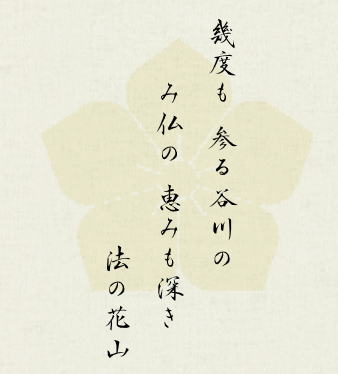 幾度も 参る谷川の
み仏の 恵みも深き
法の花山